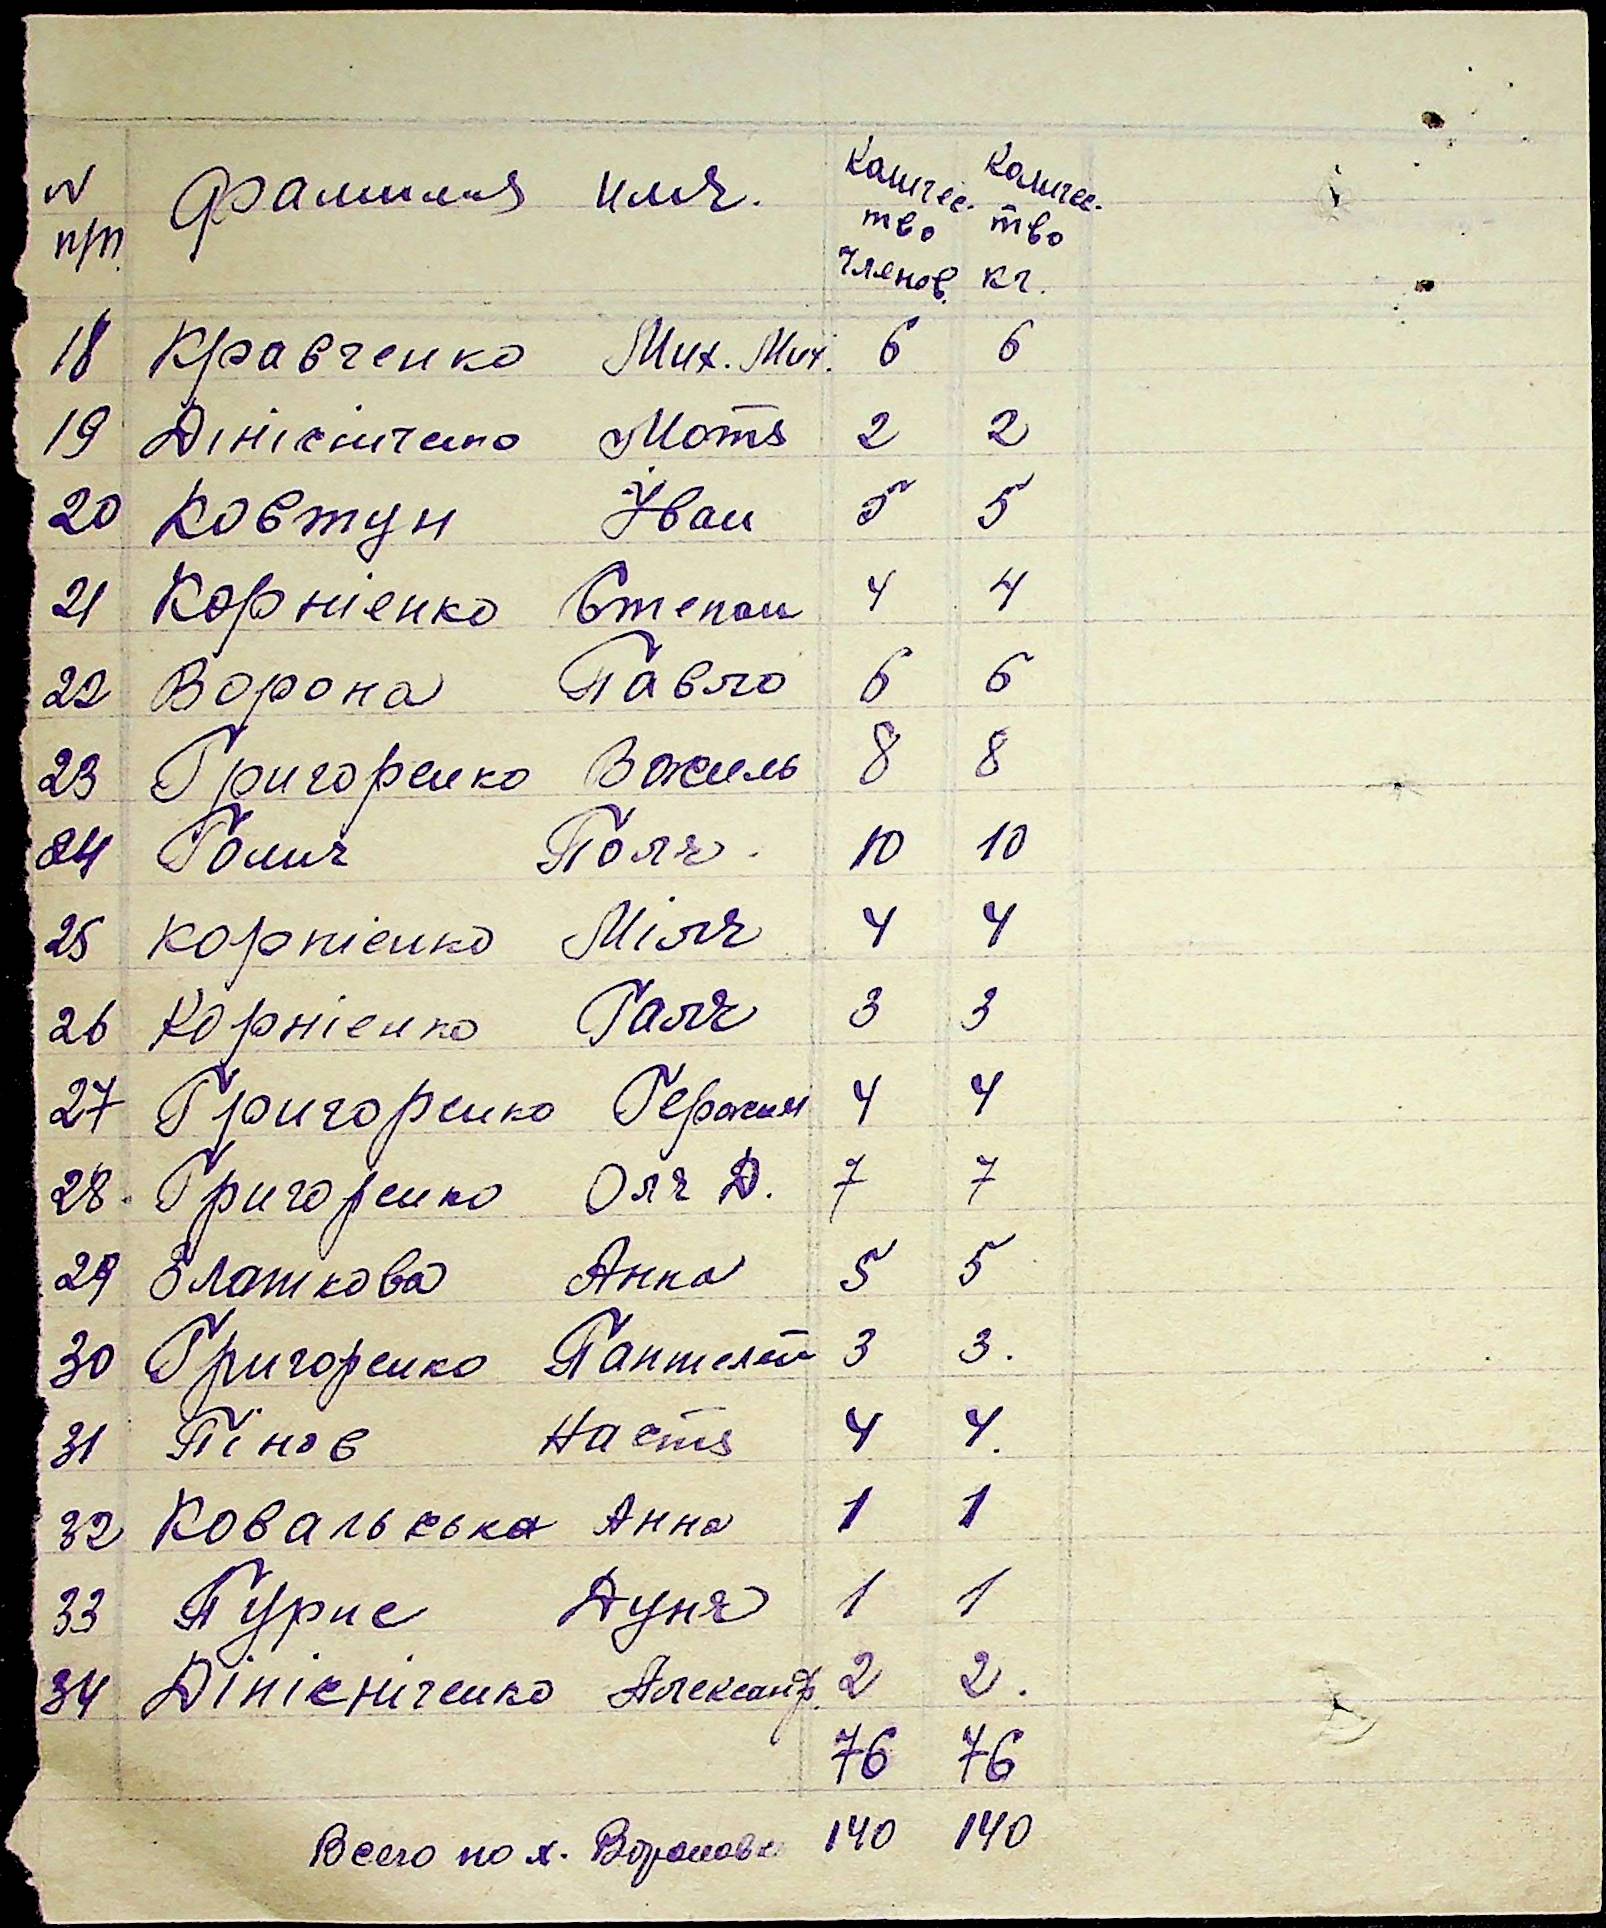 N п/п. Фамилия имя. Количес-тво членов. Количес-тво кг.
18 Кравченко Мих. Мих. 6 6
19 Дінісніченко Мотя 2 2
20 Ковтун Іван 5 5
21 Корнієнко Степан 4 4
22 Ворона Павло 6 6
23 Григоренко Василь 8 8
24 Гомич Поля. 10 10
25 Корнієнко Міля 4 4
26 Корнієнко Галя 3 3
27 Григоренко Герасим 4 4
28. Григоренко Оля Д. 7 7
29 Златкова Анна 5 5
30 Григоренко Пантелей 3 3.
31 Пінов Настя 4 4.
32 Ковальська Анна 1 1
33 Пурис Дуня 1 1
34 Дінісніченко Александр. 2 2.
76 76
Всего по х. 140 140